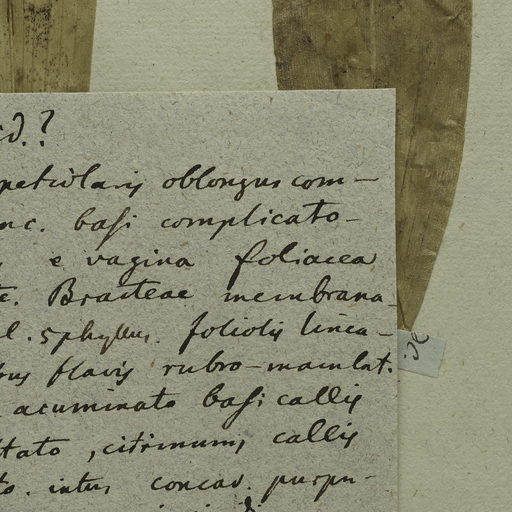 petiolaris oblongus com-
nc. basi complicato-
e vagina foliacea
te. Bracteae membrana
l. 5phyllus. foliolis linea-
bus flavis rubro-maculat.
acuminato basi callis
tato, citrinum, callis
to. intus concav. purpu-